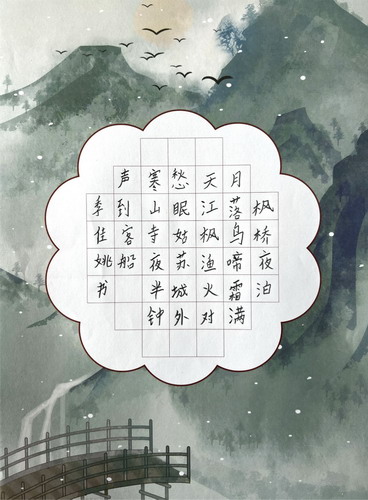 枫桥夜泊
月落乌啼霜满
天江枫渔火对
愁眠姑苏城外
寒山寺夜半钟
声到客船
季佳姚书